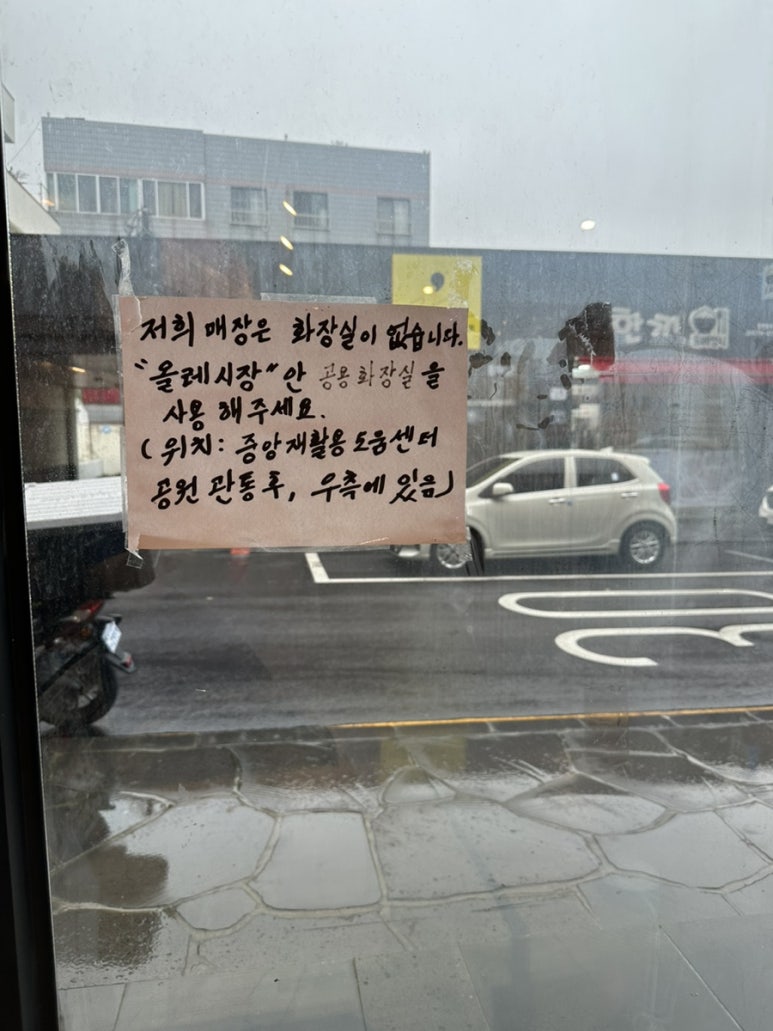 저희 매장은 화장실이 없습니다.
"올레시장"안 공용화장실을
사용 해주세요.
(위치: 중앙재활용도움센터
공원 관통후, 우측에 있음)
한끼
30